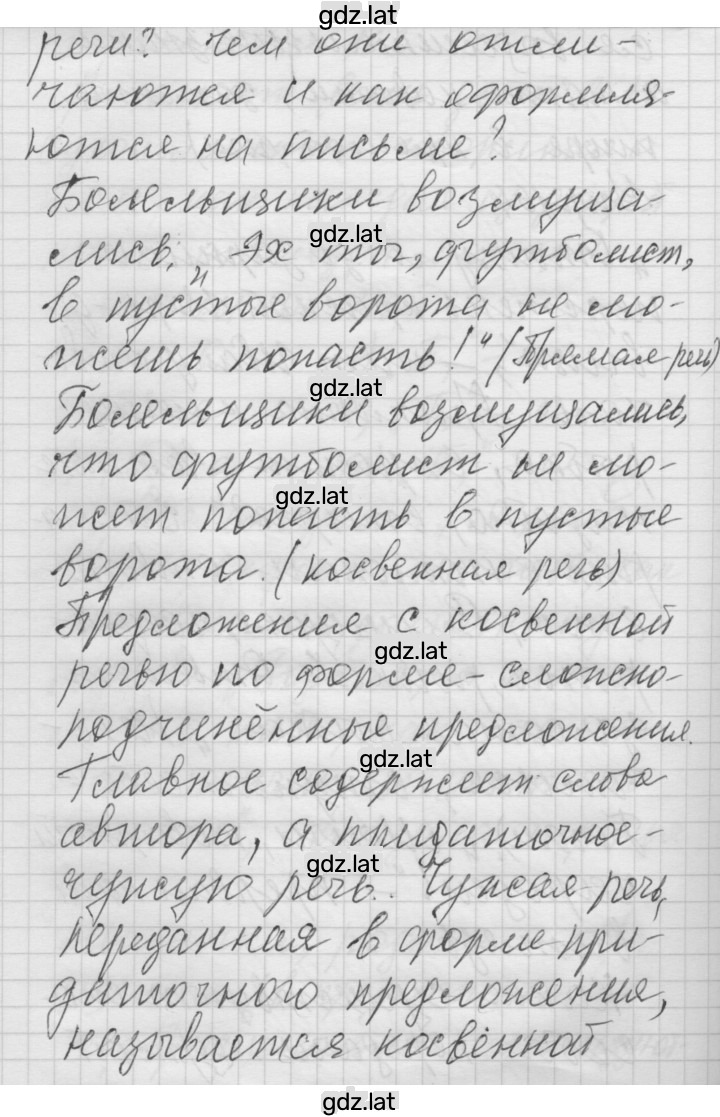 gdz.lat
речи? Чем они отли-
чаются и как оформля-
ются на письме?
Болельщики возмуща-
gdz.lat
лись. „Эх ты, футболист,
в пустые ворота не мо-
жешь попасть!“ (Прямая речь)
gdz.lat
Болельщики возмущались,
что футболист не мо-
gdz.lat
жет попасть в пустые
ворота. (косвенная речь)
Предложения с косвенной
gdz.lat
речью по форме - сложно-
подчинённые предложения.
gdz.lat
Главное содержит слова
автора, а придаточное -
gdz.lat
чужую речь. Чужая речь,
переданная в форме при-
даточного предложения,
называется косвенной
gdz.lat